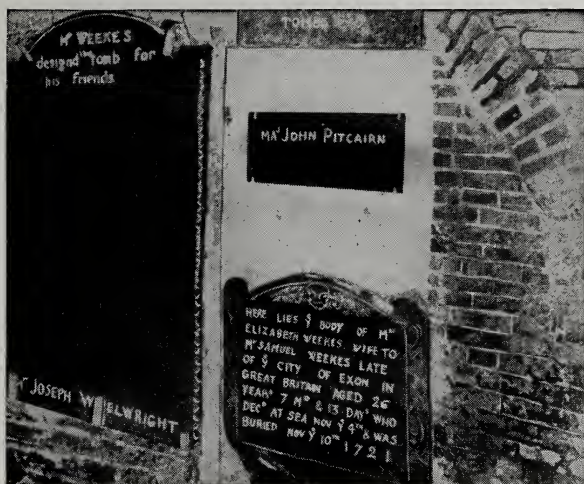 Mr WEEKES
designd this Tomb for
his friends
JOSEPH WHELWRIGHT
TOMB
MAJ JOHN PITCAIRN
HERE LIES Ye BODY OF Mrs
ELIZABETH WEEKES WIFE TO
Mr SAMUEL WEEKES LATE
OF Ye CITY OF EXON IN
GREAT BRITAIN AGED 26
YEARs 7 Mos & 13 DAYs WHO
DECd AT SEA NOV Ye 4th & WAS
BURIED NOV Ye 10th 1721